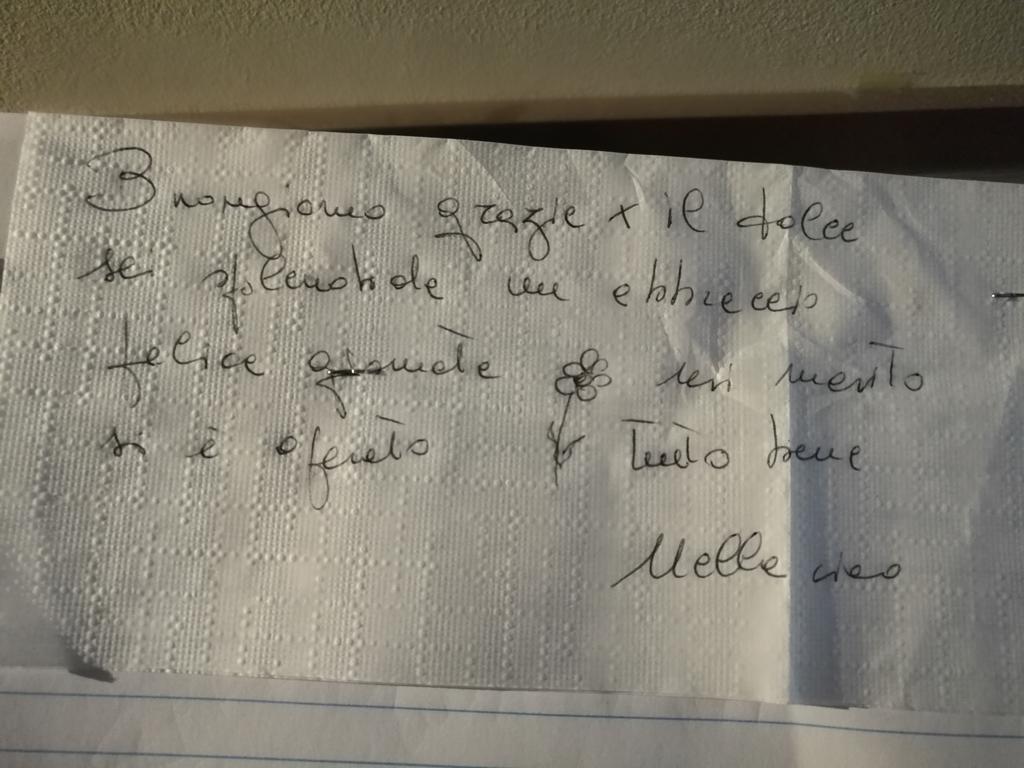 Buongiorno grazie x il dolce
sei splendida un abbraccio
felice giornata ieri marito
si è operato Tutto bene
ciao